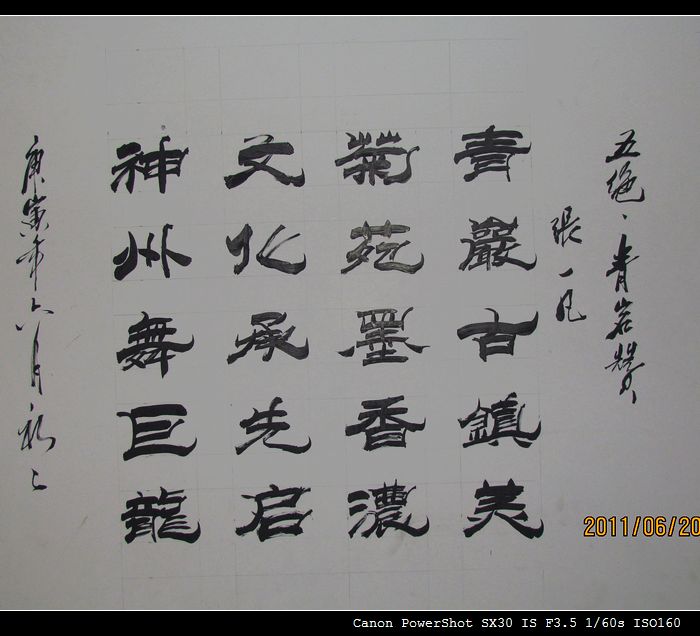 五绝、青岩赞
張一凡
青巖古鎮美
菊苑墨香濃
文化承先启
神州舞巨龍
庚寅年六月初二
2011/06/20
Canon PowerShot SX30 IS F3.5 1/60s ISO160